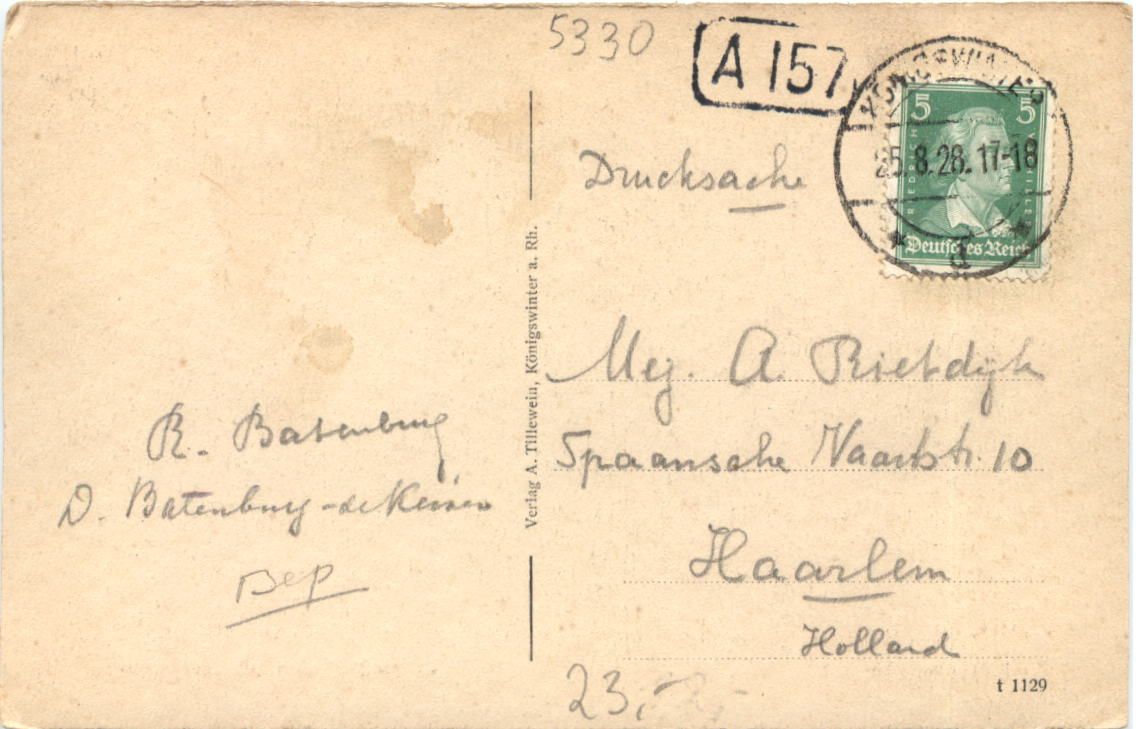 5330
A 157
KÖNIGSWINTER
25.8.28.17-18
d
5 5
FRIEDRICH SCHILLER
Deutsches Reich
Drucksache
Mej. A Rietdijk
Spaansche Vaartstr. 10
Haarlem
Holland
R. Batenburg
D. Batenburg-de
Bep
Verlag A. Tillewein, Königswinter a. Rh.
23,
t 1129